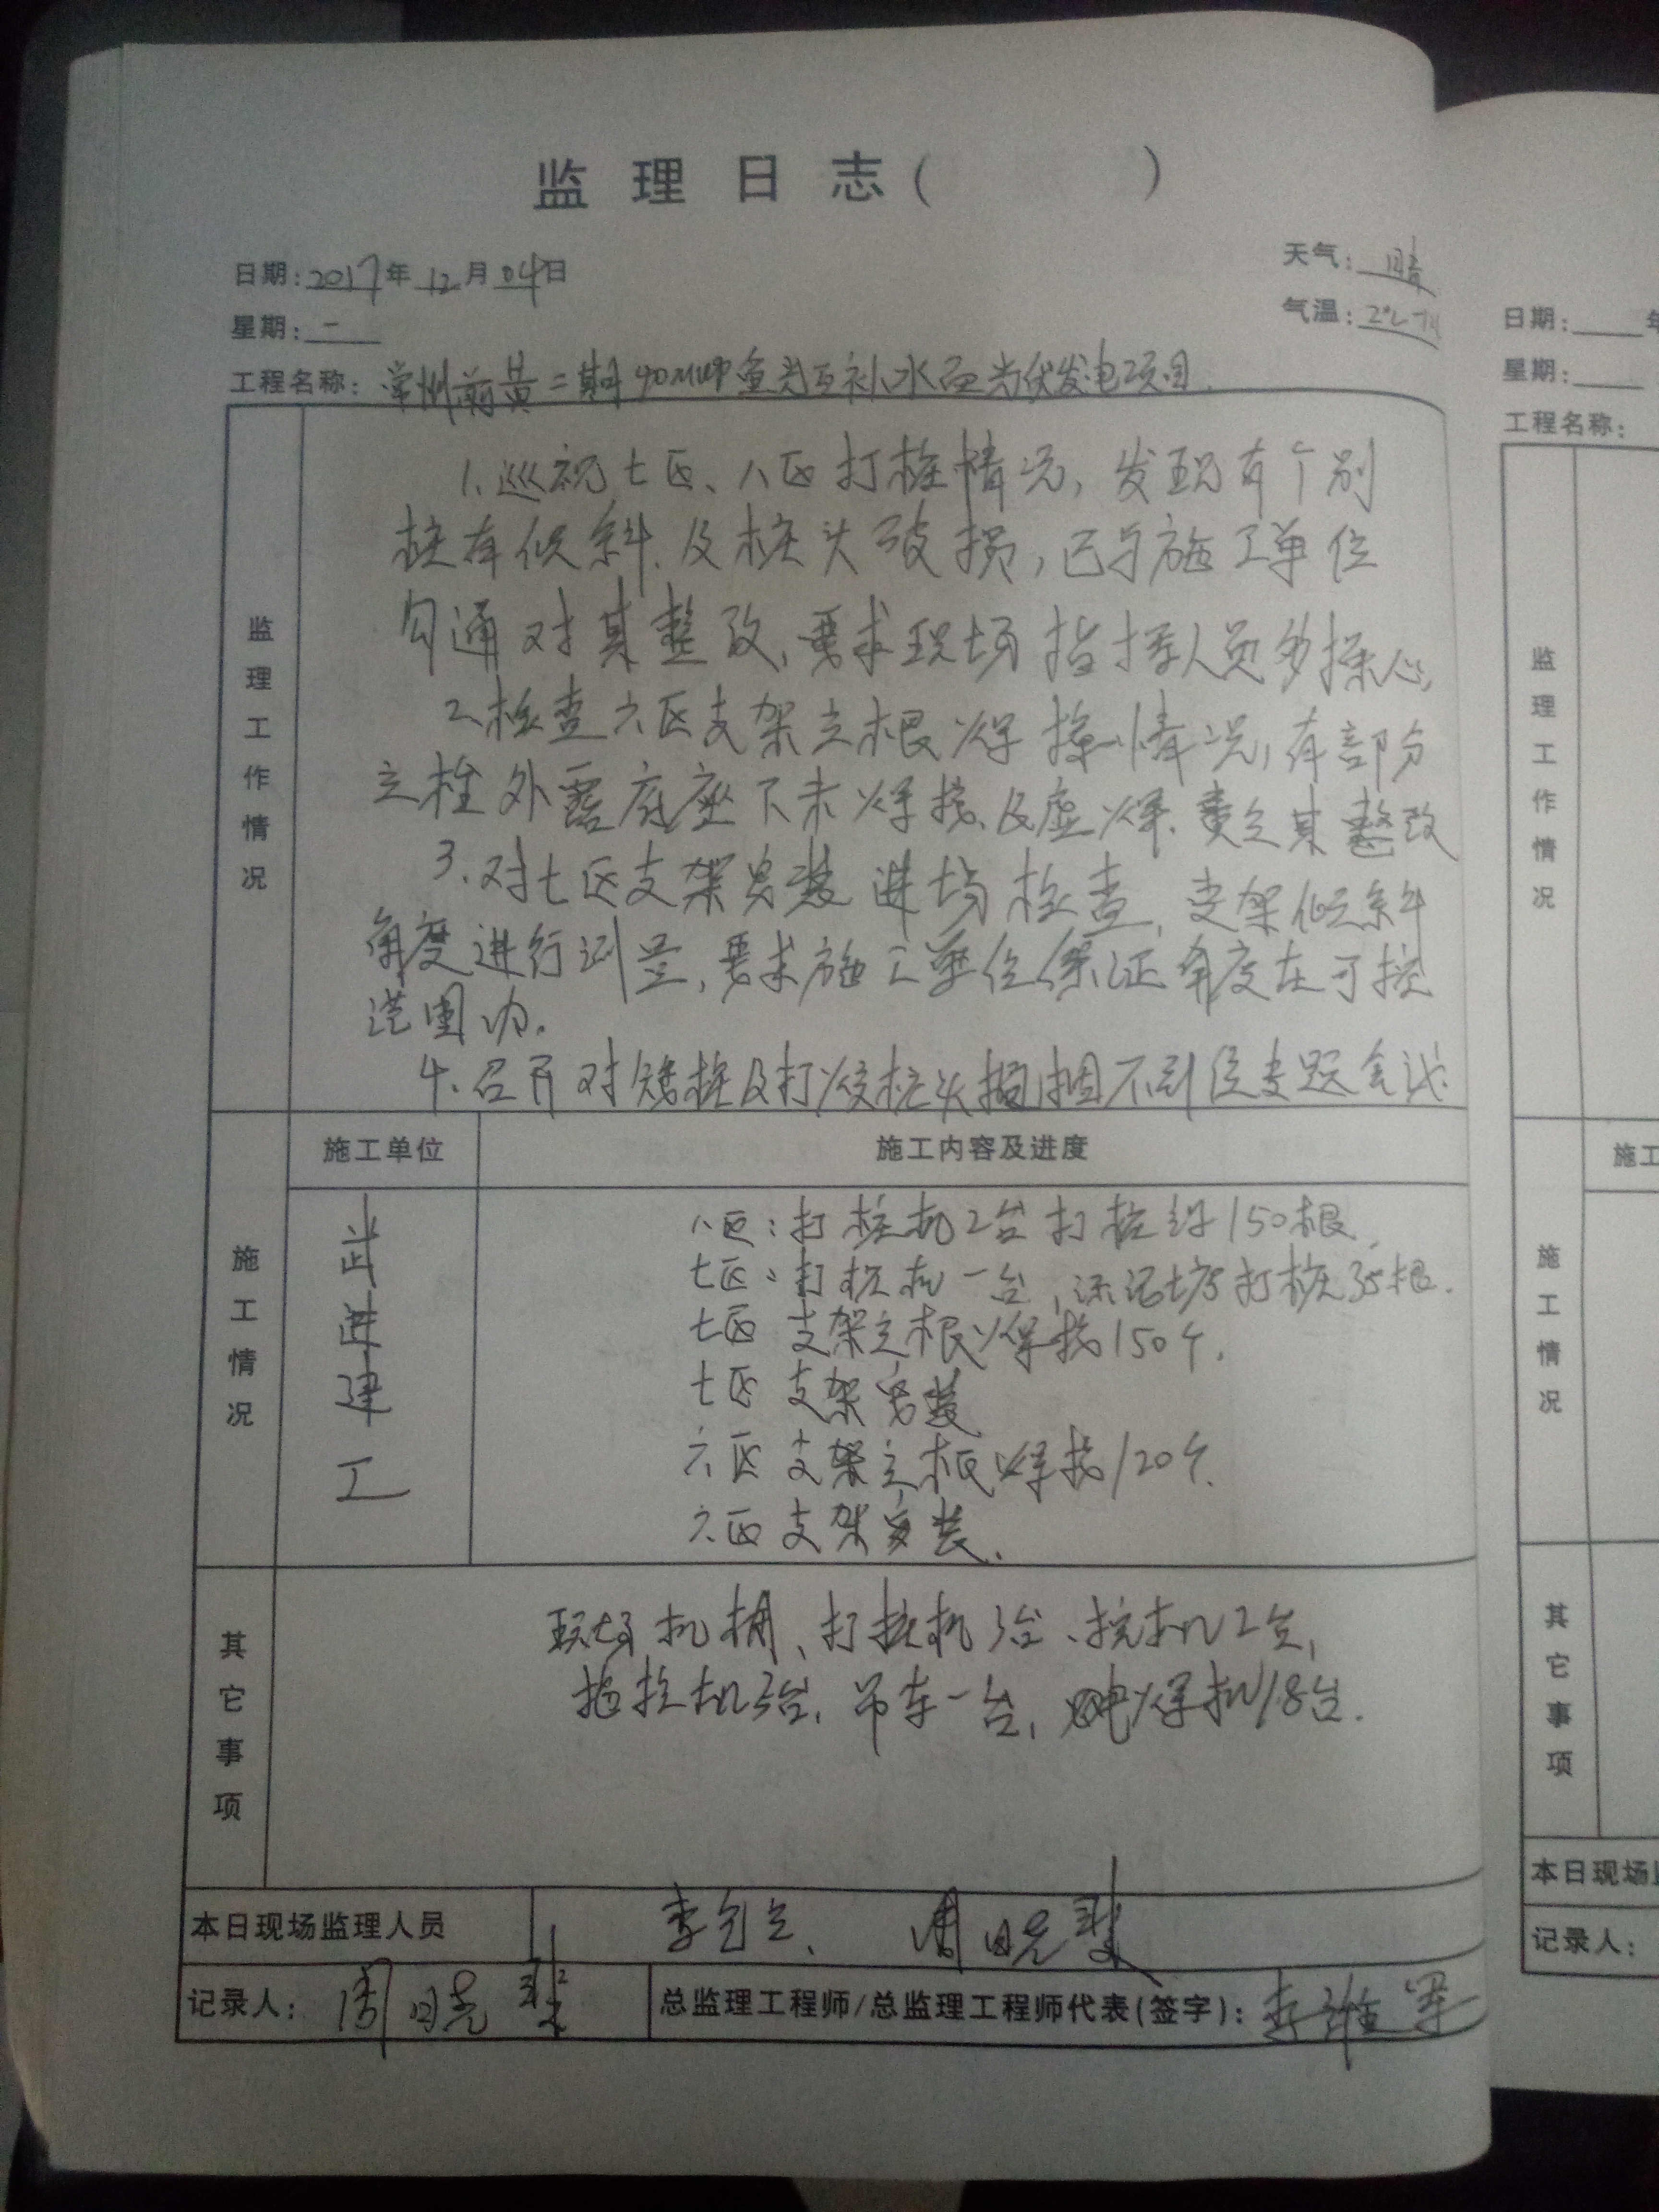 监理日志(          )
日期:2017年12月04日
天气:晴
星期:二
气温:2℃
工程名称:常州前黄二期40MWP鱼光互补水面光伏发电项目.
监理工作情况
1.巡视七区、八区打桩情况,发现有个别
桩有倾斜.及桩头破损,已与施工单位
勾通对其整改,要求现场指挥人员多操心,
2.检查六区支架立根焊接情况,有部分
立柱外露底座下未焊接.及虚焊.责令其整改
3.对七区支架安装进场检查,支架倾斜
角度进行测量,要求施工单位保证角度在可控
范围内.
4.召开对矮桩及打 桩头 不到位专题会议.
施工情况
施工单位
施工内容及进度
武进建工
八区:打桩机2台打桩约150根.
七区:打桩机一台,  打桩35根.
七区 支架立根焊接150个.
七区 支架安装
六区 支架立根焊接120个.
六区 支架安装.
其它事项
现场机械、打桩机3台、挖机2台,
拖拉机3台,吊车一台,电焊机18台.
本日现场监理人员
李 、 周晓
记录人:周晓
总监理工程师/总监理工程师代表(签字):李维军
日期:  年
星期:
工程名称:
监理工作情况
施工
施工情况
其它事项
本日现场
记录人: